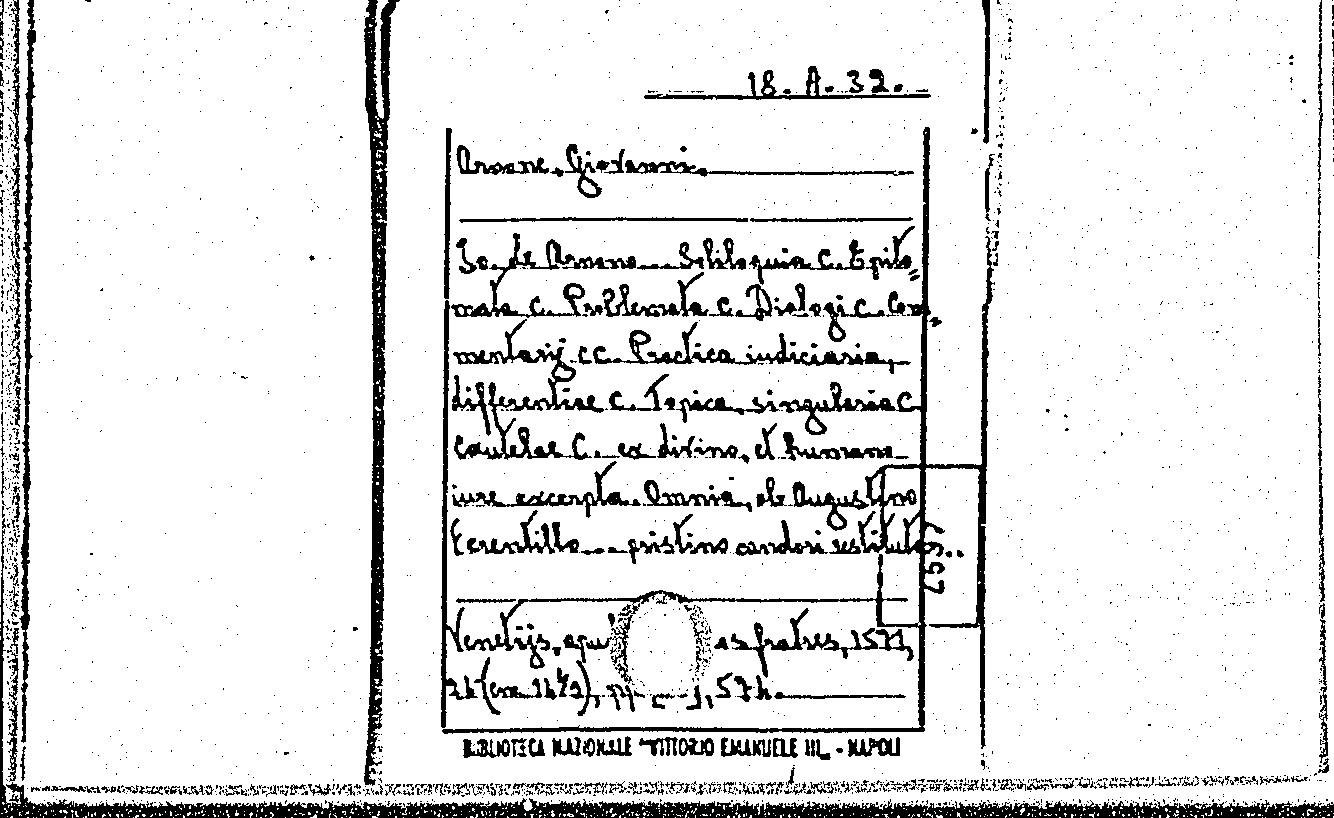 18. A. 32.
Arnone, Giovanni.
Io. de Arnono... Soliloquia C. Epito=
mata C. Problemata C. Dialogi C. Com=
mentarij CC. Practica iudiciaria,
differentiae C. Topica, singularia C.
cautelae C. ex divino, et humano
iure excerpta. Omnia, ab Augustino
Terentillo... pristino candori restituta...
Venetijs, as fratres, 1571,
24 (cm. 14½), pp. 574.
BIBLIOTECA NAZIONALE "VITTORIO EMANUELE III„ - NAPOLI